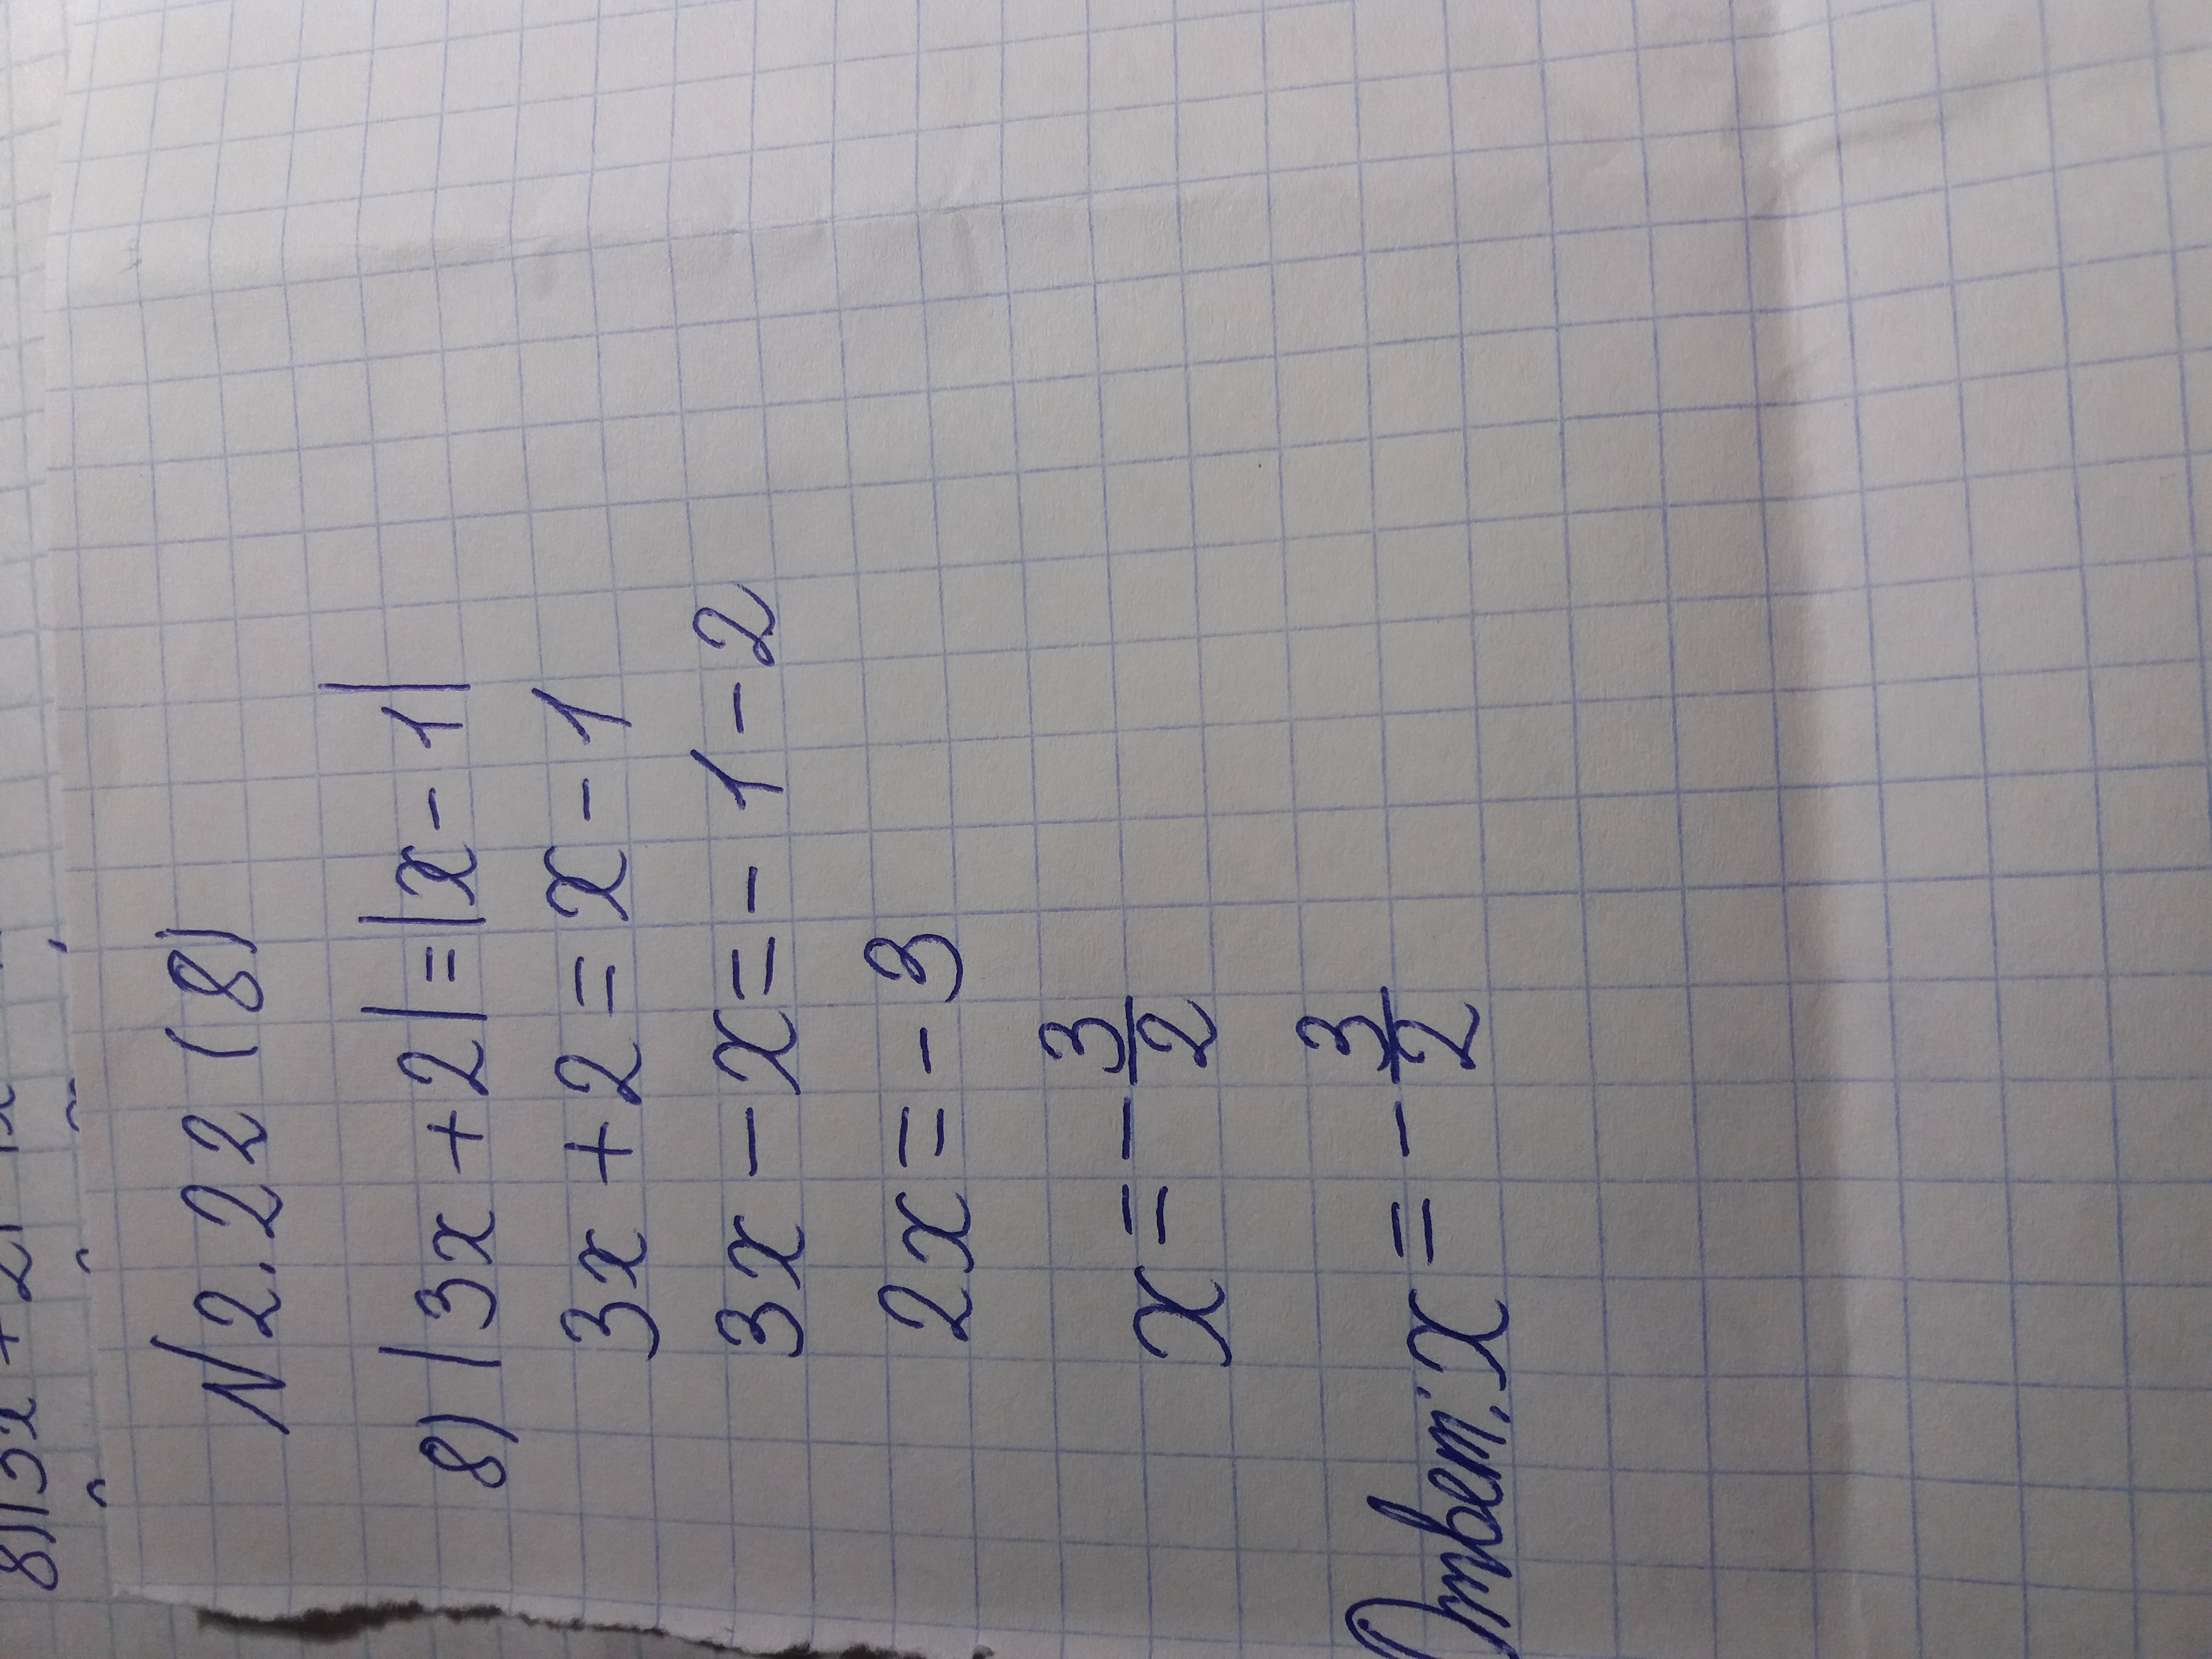 N 2.22 (8)
8) |3x+2|=|x-1|
3x+2=x-1
3x-x=-1-2
2x=-3
x=-3/2
Ответ: x=-3/2